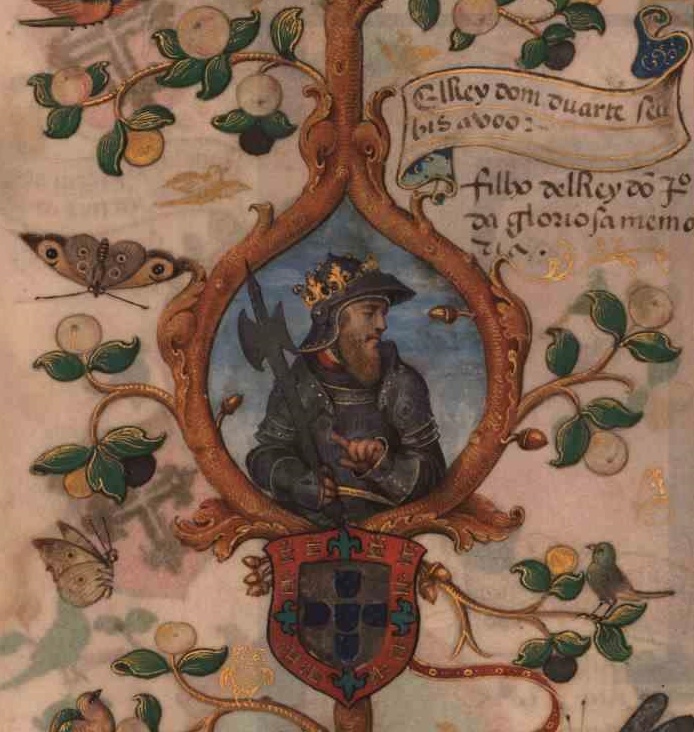 Elrey dom duarte seu
bisavoo:~
filho delRey dõ Jº
da gloriosa memo
ria